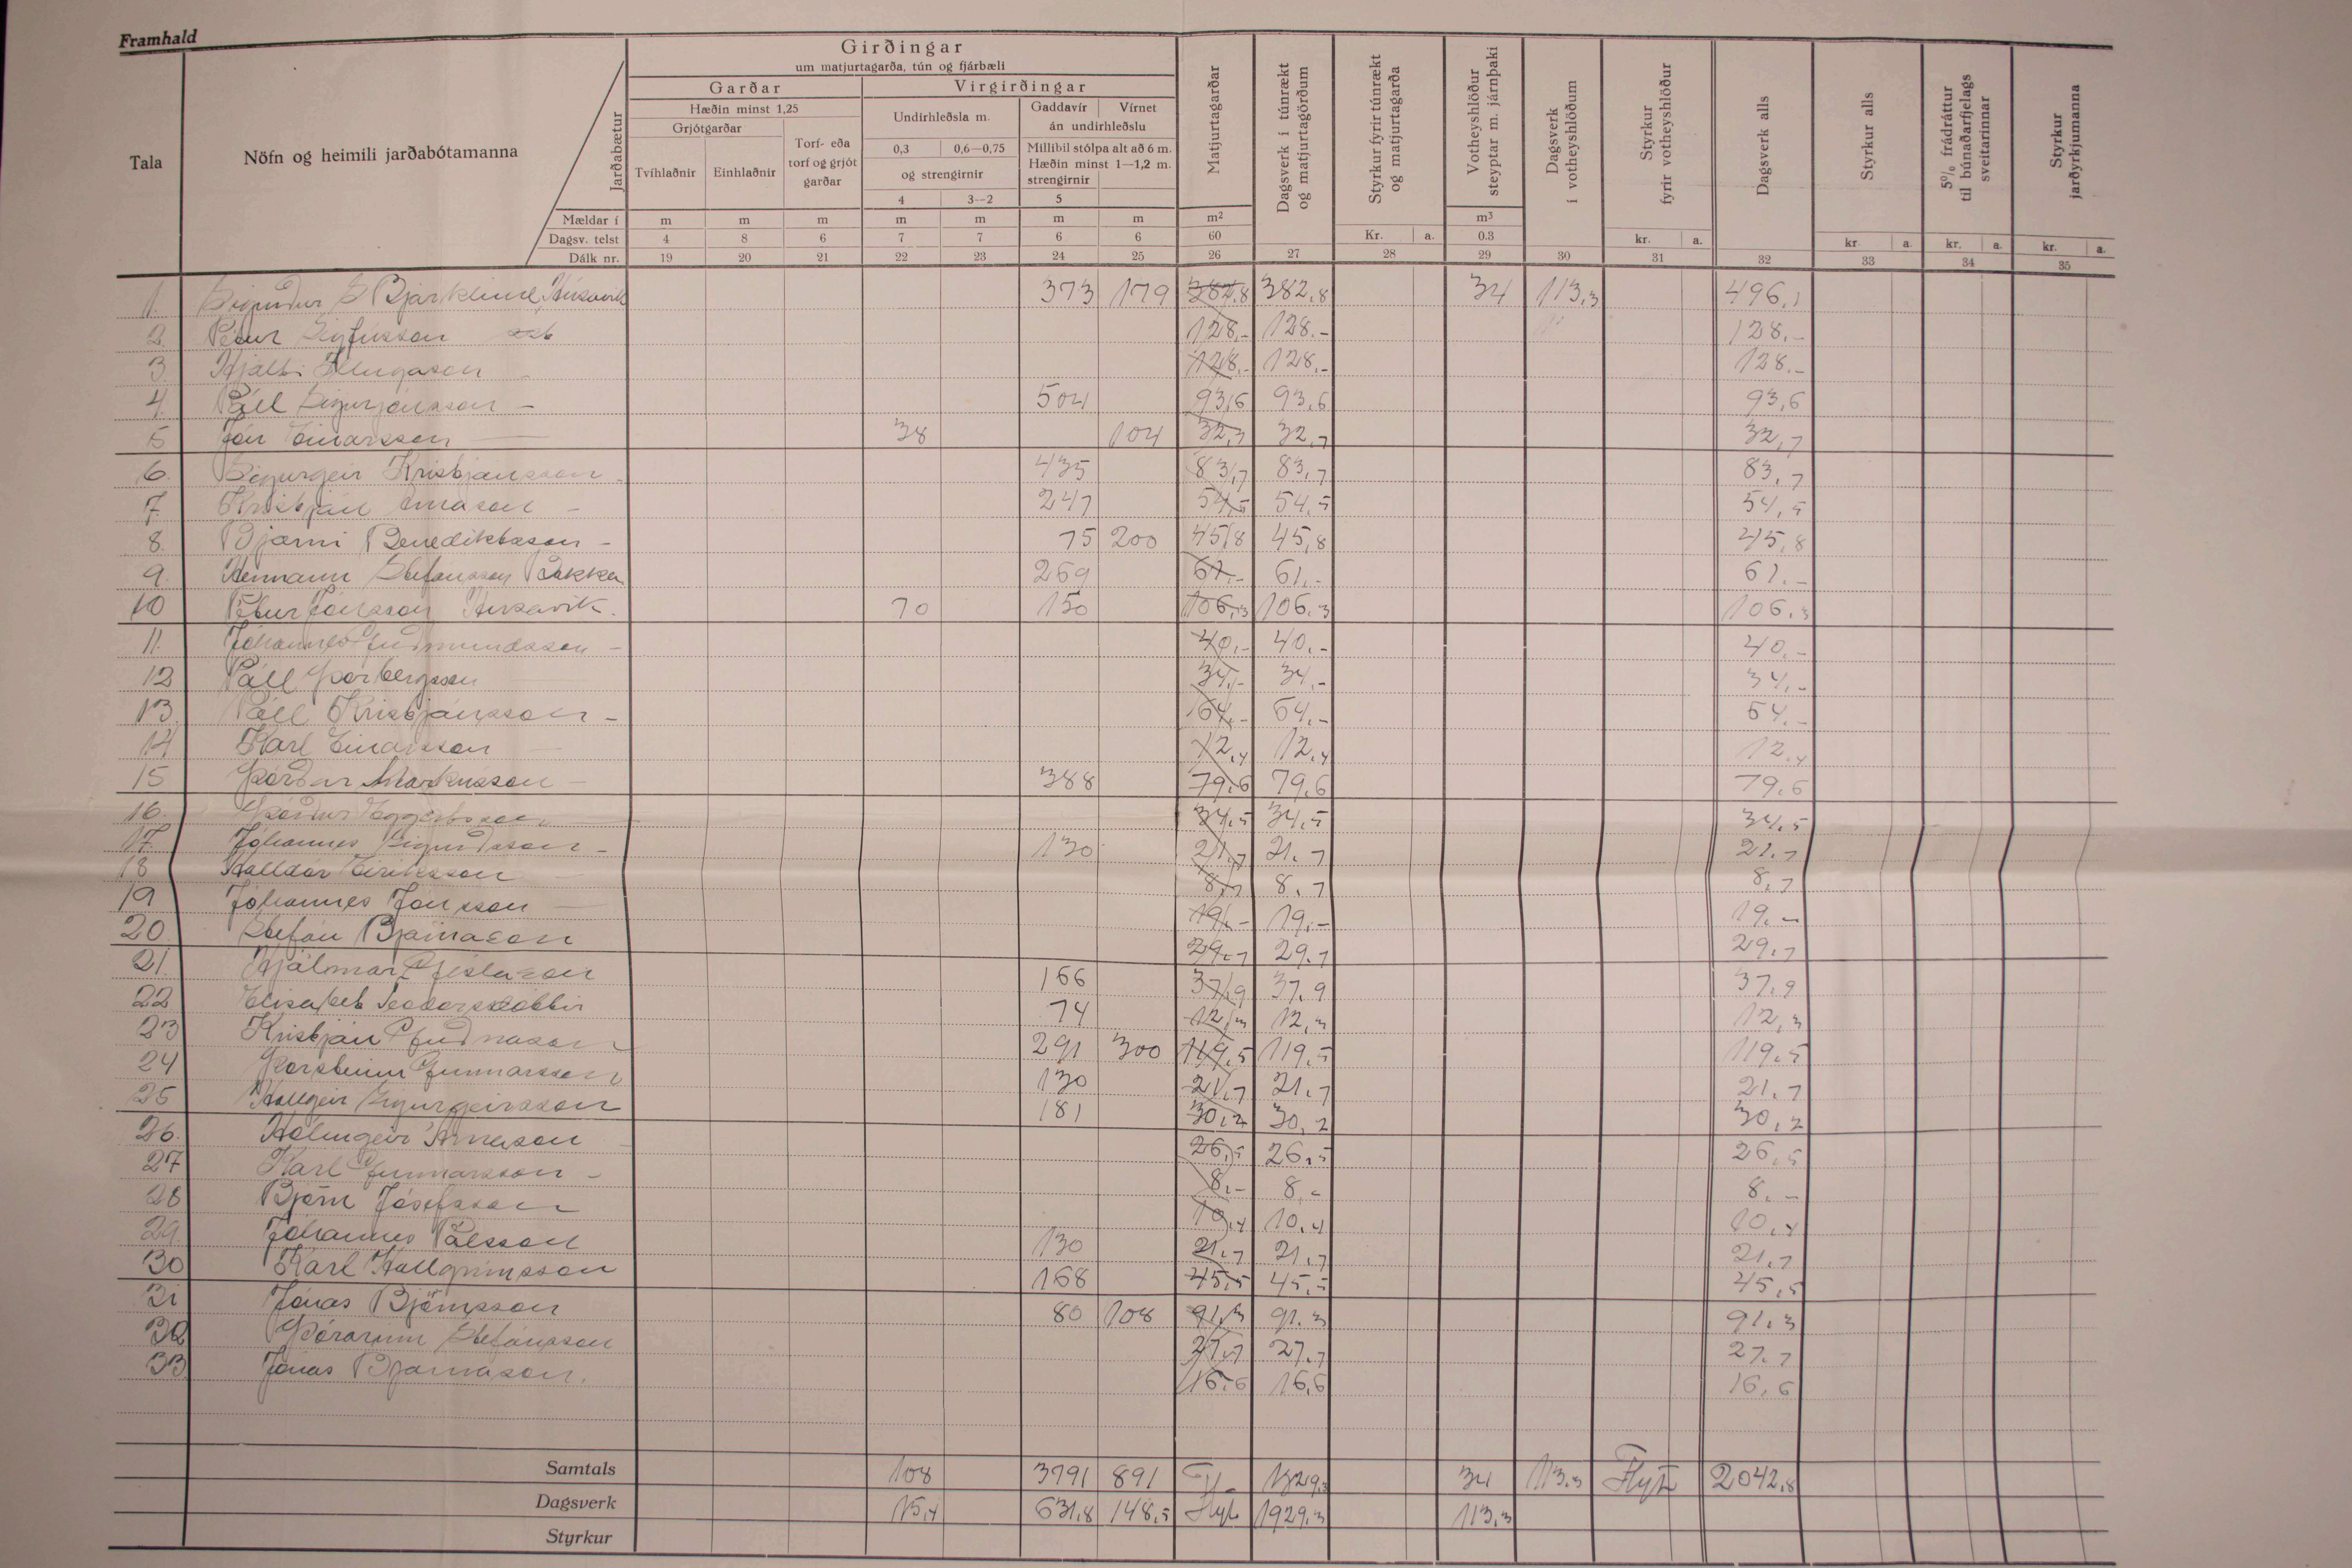 Framhald
Tala
Nöfn og heimili jarðabótamanna
Jarðabætur
Mældar í
Dagsv. telst
Dálk nr.
Girðingar
um matjurtagarða, tún og fjárbæli
Garðar
Virgirðingar
Hæðin minst 1,25
Grjótgarðar
Tvíhlaðnir
Einhlaðnir
Torf- eða torf og grjót garðar
Undirhleðsla m.
0,3
0,6—0,75
og strengirnir
4
3—2
Gaddavír
Vírnet
án undirhleðslu
Millibil stólpa alt að 6 m.
Hæðin minst 1—1,2 m.
strengirnir
5
Matjurtagarðar
Dagsverk í túnrækt og matjurtagörðum
Styrkur fyrir túnrækt og matjurtagarða
Votheyshlöður steyptar m. járnþaki
Dagsverk í votheyshlöðum
Styrkur fyrir votheyshlöður
Dagsverk alls
Styrkur alls
5% frádráttur til búnaðarfjelags sveitarinnar
Styrkur jarðyrkjumanna
m m m m m m m m² m³
4 8 6 7 7 6 6 60 Kr. a. 0.3 kr. a. kr. a. kr. a. kr. a.
19 20 21 22 23 24 25 26 27 28 29 30 31 32 33 34 35
1. Sigurður S Bjarklind, Húsavík 373 179 382,8 382,8 34 113,3 496,1
2. Pétur Sigfússon 128,- 128,- 128,-
3 Hjalti Illugason 128,- 128,- 128,-
4. Páll Sigurjónsson - 504 93,6 93,6 93,6
5 Jón Einarsson 38 104 32,7 32,7 32,7
6. Sigurgeir Kristjánsson 435 83,7 83,7 83,7
7. Kristján Árnason - 247 54,5 54,5 54,5
8. Bjarni Benediktsson - 75 200 45,8 45,8 45,8
9. Hermann Stefánsson Bakka 269 61,- 61,- 61,-
10 Pétur Jónsson Húsavík. 70 150 106,3 106,3 106,3
11. Jóhannes Guðmundsson - 40,- 40,- 40,-
12 Páll Þorbergsson 34,- 34,- 34,-
13. Páll Kristjánsson - 64,- 64,- 64,-
14 Karl Einarsson 12,4 12,4 12,4
15 Þórður Markússon - 388 79,6 79,6 79,6
16. Þórður Eggertsson 34,5 34,5 34,5
17. Jóhannes Sigurðsson - 130 21,7 21,7 21,7
18 Halldór Eiríksson 8,7 8,7 8,7
19 Jóhannes Jónsson 19,- 19,- 19,-
20 Stefán Bjarnason 29,7 29,7 29,7
21 Hjálmar Gíslason 166 37,9 37,9 37,9
22 Elísabet 74 12,3 12,3 12,3
23 Kristján Guðnason 291 300 119,5 119,5 119,5
24 Þorsteinn Gunnarsson 130 21,7 21,7 21,7
25 Hallgeir Sigurgeirsson 181 30,2 30,2 30,2
26. Hólmgeir Árnason 26,5 26,5 26,5
27 Karl Gunnarsson - 8,- 8,- 8,-
28 Björn Jósefsson 10,4 10,4 10,4
29 Jóhannes Pálsson 130 21,7 21,7 21,7
30 Karl Hallgrímsson 168 45,5 45,5 45,5
31 Jónas Björnsson 80 108 91,3 91,3 91,3
32 Þórarinn Stefánsson 27,7 27,7 27,7
33 Jónas Bjarnason. 16,6 16,6 16,6
Samtals 108 3791 891 1329,3 34 113,3 Flyt 2042,8
Dagsverk 15,4 631,8 148,5 Flyt 1929,3 113,3
Styrkur